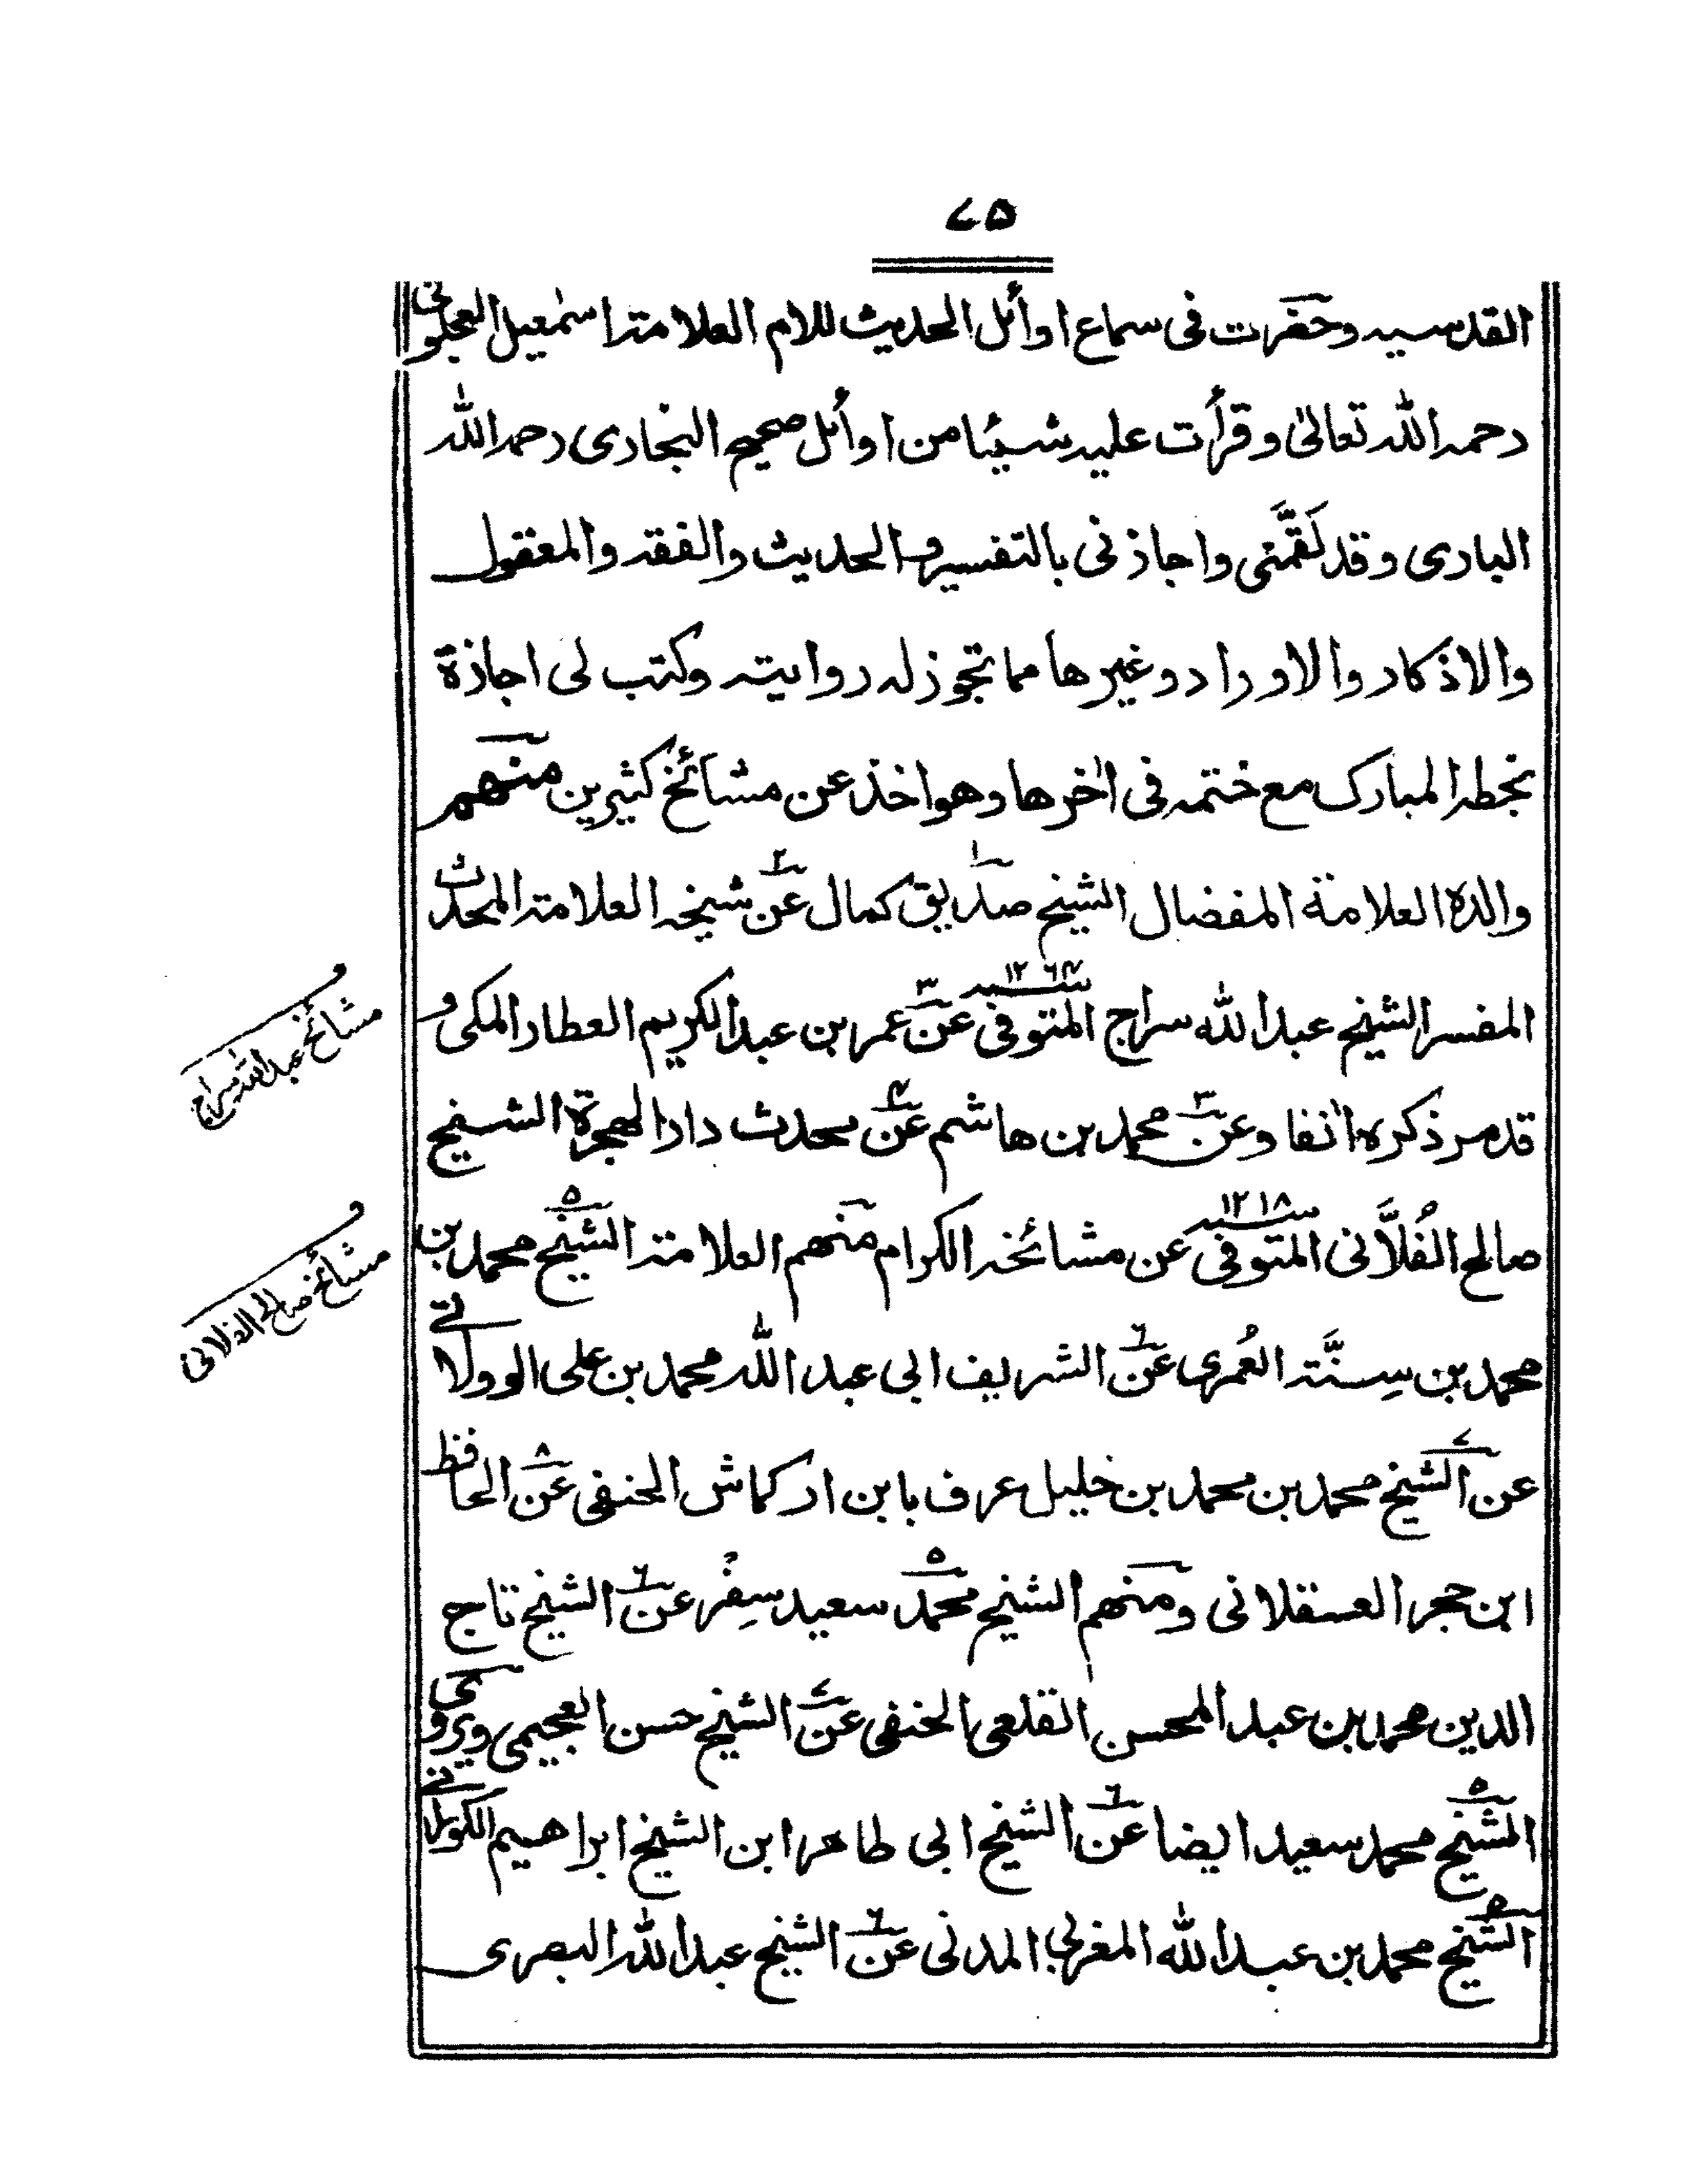 ٧٥
القدسيه وحضرت فى سماع اوائل الحديث للام العلامة اسمٰعيل العجلونى
رحمه الله تعالىٰ وقرأت عليه شيئا من اوائل صحيح البخارى رحمه الله
البارى وقد لَقَّمَنى واجازنى بالتفسير والحديث والفقه والمعقول
والاذكار والاوراد وغيرها مما تجوز له روايته وكتب لى اجازة
بخطه المبارك مع ختمه فى اٰخرها وهو اخذ عن مشائخ كثيرين منهم
والده العلامة المفضال الشيخ ١ صديق كمال عن ٢ شيخه العلامة المحدث
المفسر الشيخ عبد الله سراج المتوفى سنه ١٢٦٤ عن ٣ عمر بن عبد الكريم العطار المكى و
قد مر ذكره اٰنفا وعن ٣ محمد بن هاشم عن ٤ محدث دار الهجرة الشيخ
صالح الفُلَّانى المتوفى سنه ١٢١٨ عن مشائخه الكرام منهم العلامة الشيخ ٥ محمد بن
محمد بن سِنَّة العُمرى عن ٦ الشريف ابى عبد الله محمد بن على الوولاتى
عن الشيخ ٧ محمد بن محمد بن خليل عرف بابن اركماش الحنفى عن ٨ الحافظ
ابن حجر العسقلانى ومنهم الشيخ محمد ٥ سعيد سِفْر عن ٦ الشيخ تاج
الدين محمد بن عبد المحسن القلعى الحنفى عن ٧ الشيخ حسن العجيمى ويروى
الشيخ ٥ محمد سعيد ايضا عن ٦ الشيخ ابى طاهر ابن الشيخ ابراهيم الكورانى
الشيخ ٥ محمد بن عبد الله المغربى المدنى عن ٦ الشيخ عبد الله البصرى
مشائخ عبد الله سراج
مشائخ صالح الفلانى